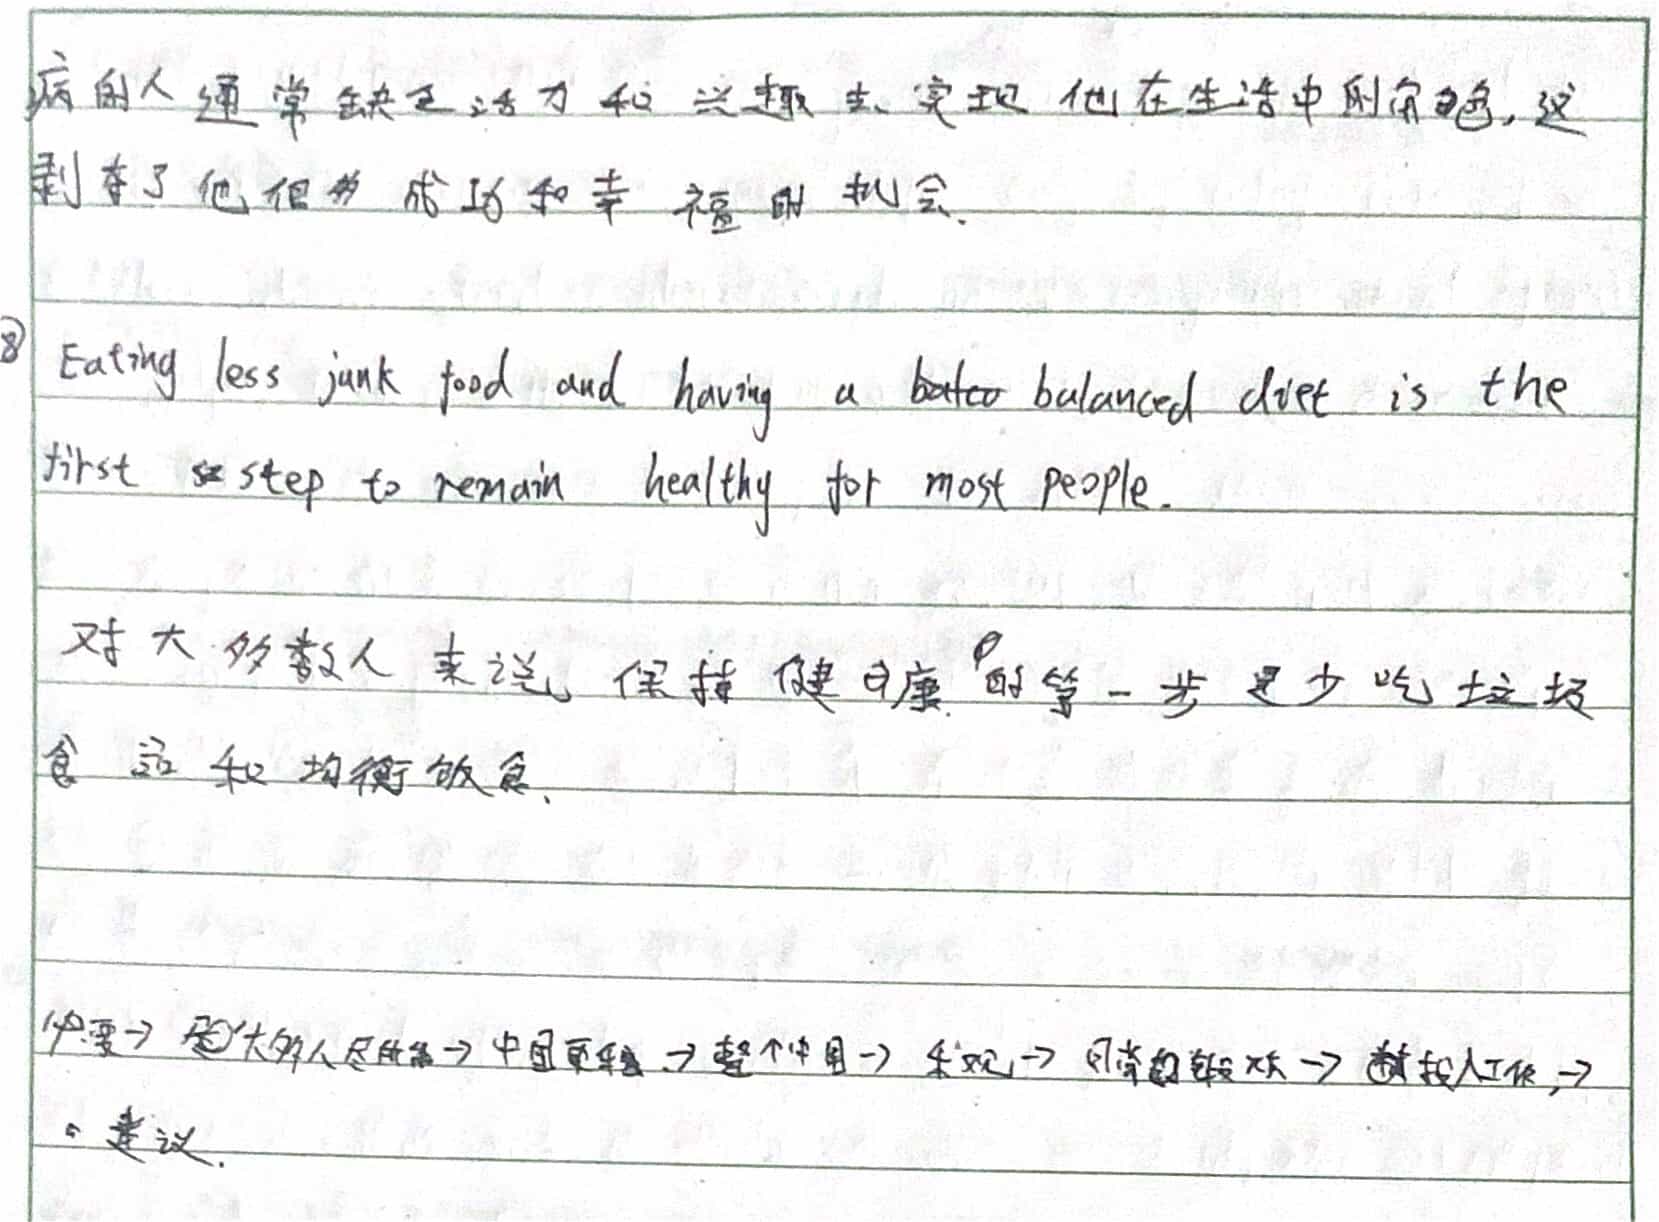 病的人通常缺乏活力和兴趣去实现他在生活中的角色,这
剥夺了他很多成功和幸福的机会.
⑧ Eating less junk food and having a balanced diet is the
first step to remain healthy for most people.
对大多数人来说,保持健康的第一步是少吃垃圾
食品和均衡饮食.
大多人尽所能→中国更→整个中国→乐观→日常的锻炼→投入工作,→
建议.